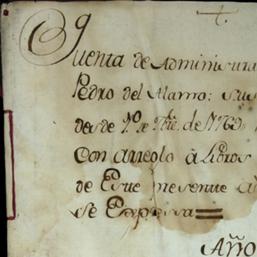 Quenta de Administra
Pedro del Alamo: sus
desde 1º de de 1769
Con arreglo à Libros
de Este presente
se Expressa
Año